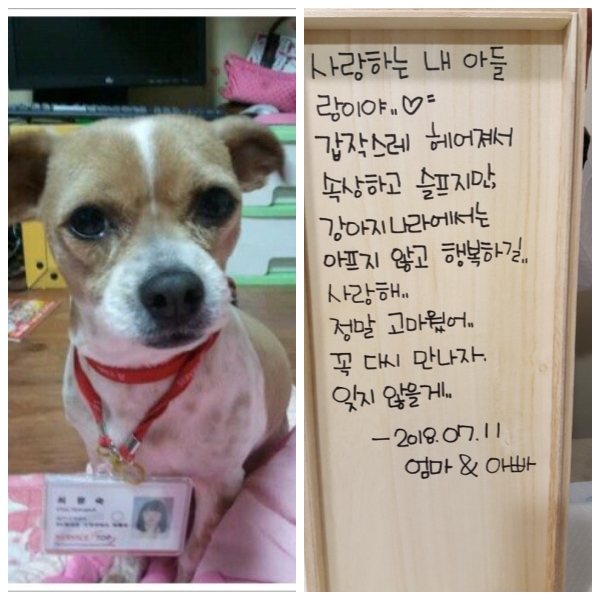 사랑하는 내 아들
랑이야,, ♡=
갑작스레 헤어져서
속상하고 슬프지만,
강아지나라에서는
아프지 않고 행복하길,,
사랑해,,
정말 고마웠어,,
꼭 다시 만나자.
잊지 않을게,,
-2018.07.11
엄마 & 아빠
최 숙
TOP